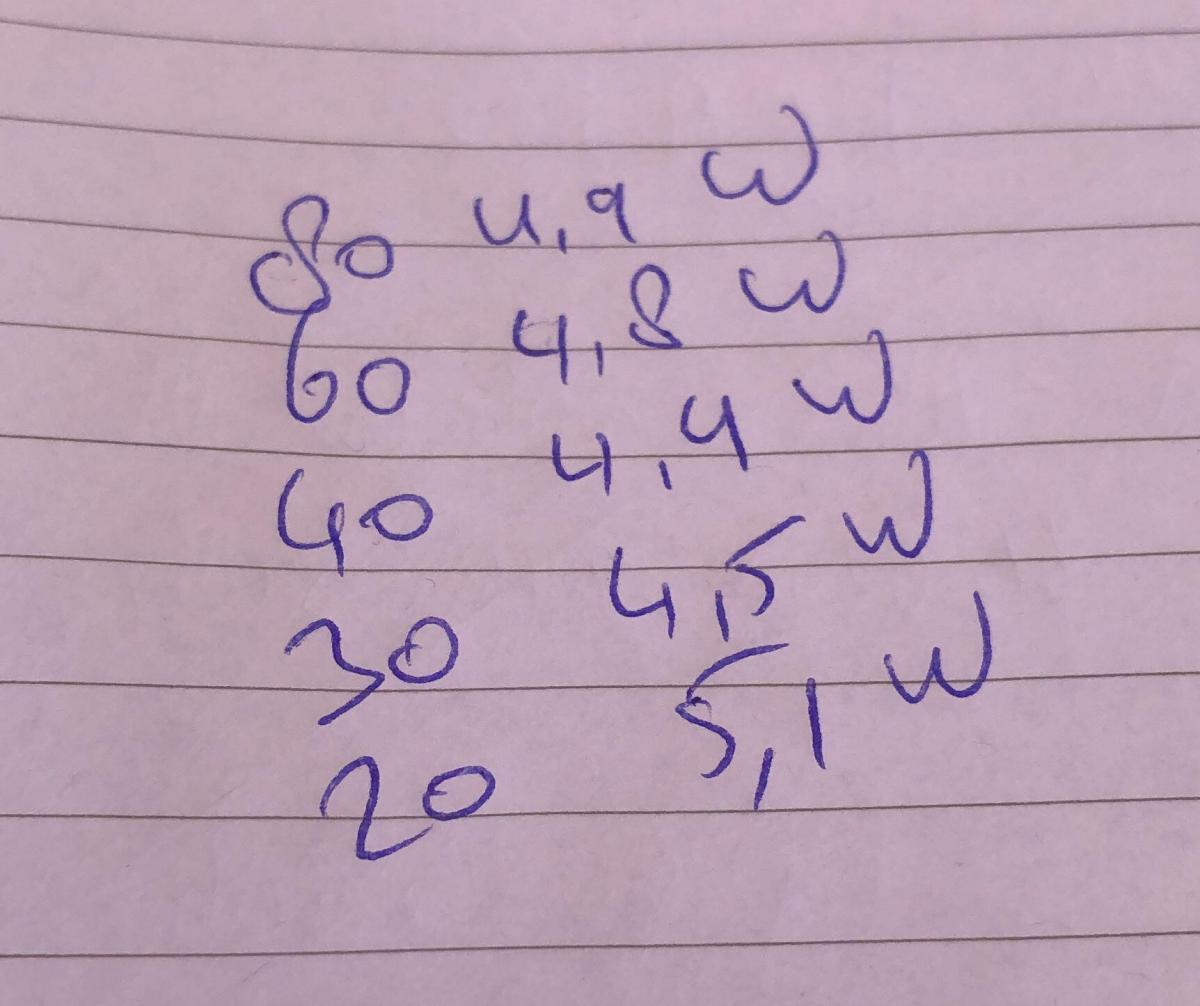 80 4,9 W
60 4,8 W
40 4,4 W
30 4,5 W
20 5,1 W